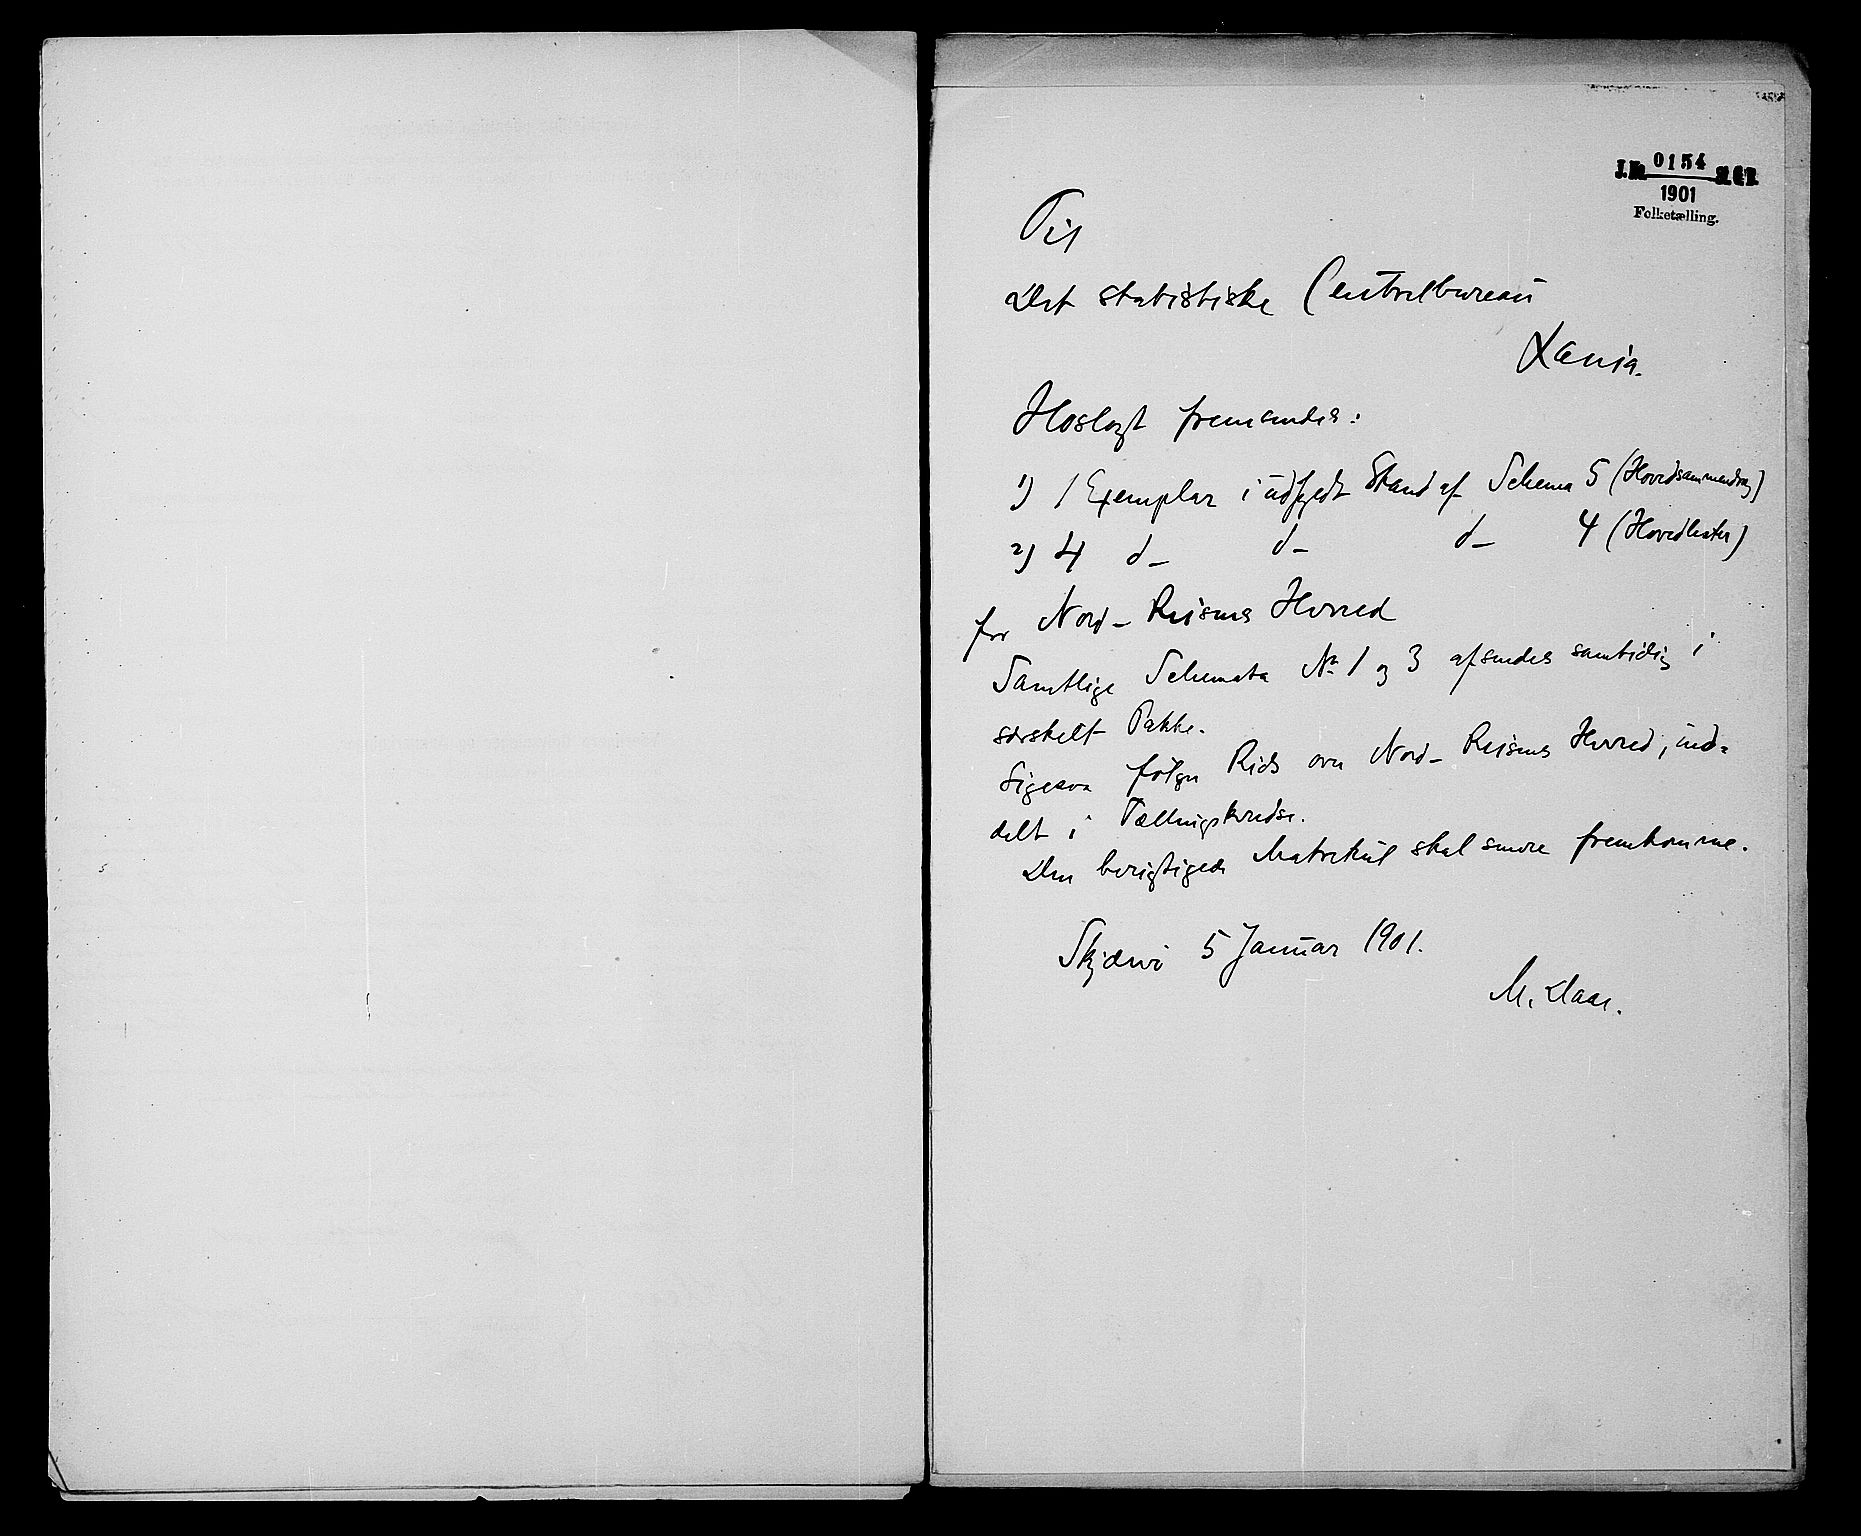 J.No. 0154 St. C.B.
1901
Folketælling.
Til
Det statistiske Centralbureau
Xania.
Hoslagt fremsendes:
1) 1 Exemplar i udfyldt Stand af Schema 5 (Hovedsammendrag)
2) 4 d– d– d– 4 (Hovedlister)
for Nord-Reisens Herred
Samtlige Schemata No 1 og 3 afsendes samtidig i
særskelt Pakke.
Ligesaa følger Rids over Nord-Reisens Herred, ind-
delt i Tællingskredse.
Den berigtigede Matrikul skal senere fremkomme.
Skjærvø 5 Januar 1901.
M. Daae.